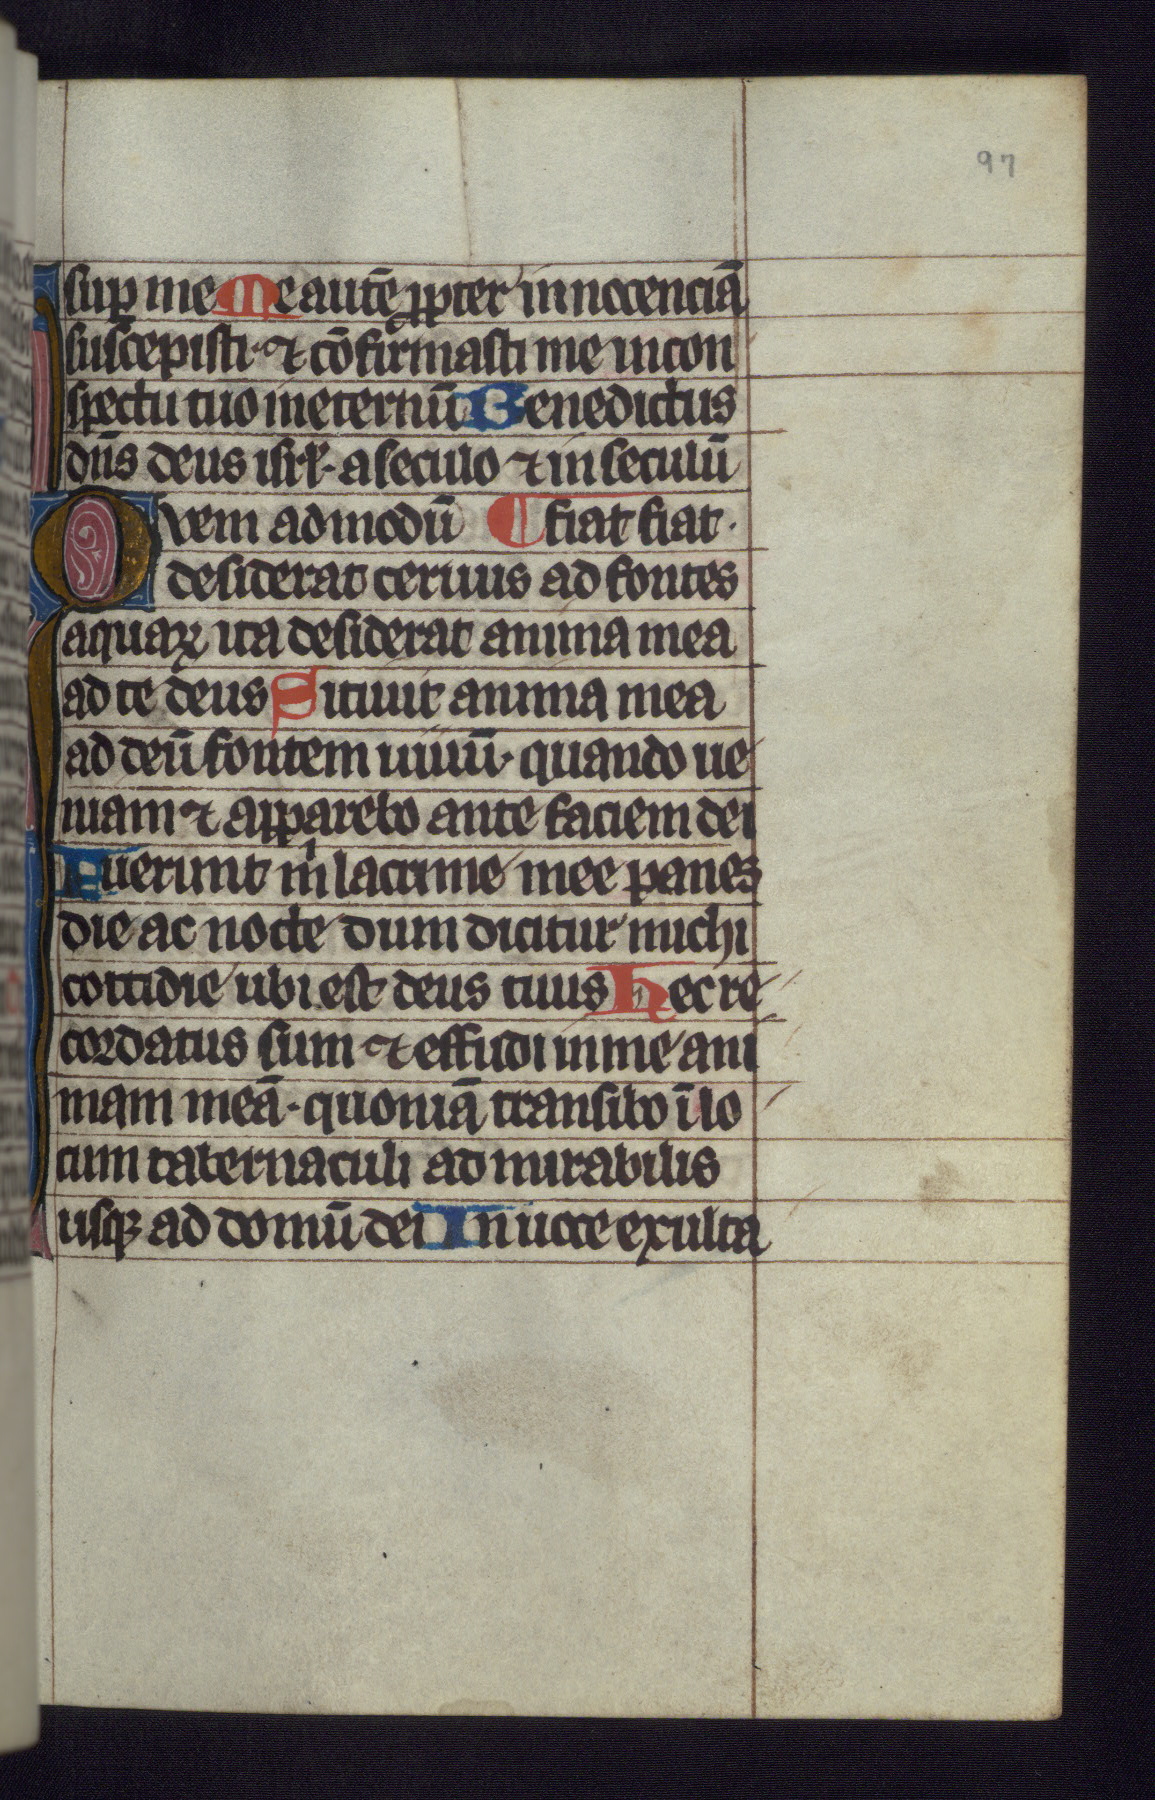 97
sup me Me autē ꝓpter innocenciā
suscepisti· ⁊ cōfirmasti me in con
spectu tuo in eternū Benedictus
dn̄s deus isrl̄· a seculo ⁊ in seculū
Qvem admodū ¶ fiat fiat·
desiderat ceruus ad fontes
aquaꝝ ita desiderat anima mea
ad te deus Sitiuit anima mea
ad deū fontem uiuū· quando ue
niam ⁊ apparebo ante faciem dei
Fuerunt m̄ lacrime mee panes
die ac nocte dum dicitur michi
cottidie ubi est deus tuus Hec re
cordatus sum ⁊ effudi in me ani
mam meā· quoniā transibo ī lo
cum tabernaculi ad mirabilis
usqꝫ ad domū dei In uoce exulta